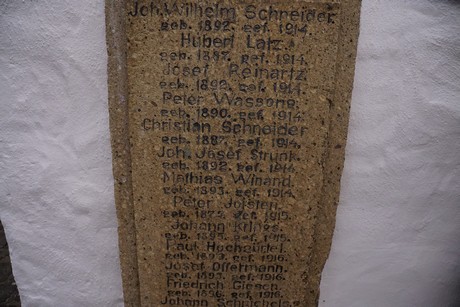 Joh. Wilhelm Schneider
geb. 1892. gef. 1914.
Hubert Latz.
geb. 1887. gef. 1914.
Josef Reinartz.
geb. 1892. gef. 1914.
Peter Wassong.
geb. 1890. gef. 1914.
Christian Schneider
geb. 1887. gef. 1914.
Joh. Josef Strunk.
geb. 1892. gef. 1914.
Mathias Winand.
geb. 1893. gef. 1914.
Peter
geb. 1872. gef. 1915.
Johann
geb. 1895. gef. 1915.
Paul Hochgürtel.
geb. 1893. gef. 1916.
Josef Offermann.
geb. 1893. gef. 1916.
Friedrich Giesen.
geb. 1896. gef. 1916.
Johann